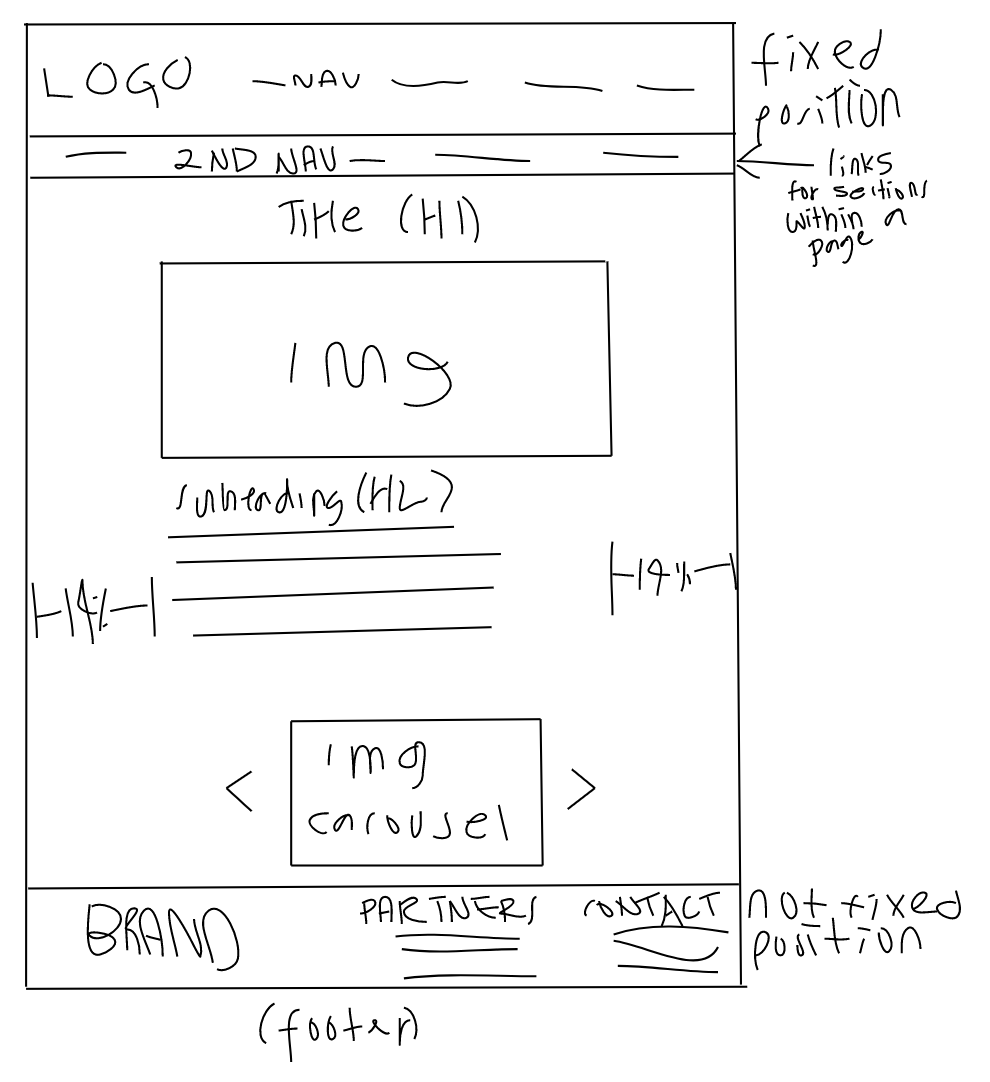 LOGO
NAV
fixed
position
2ND NAV
links
for sections
within a
page
Title (H1)
img
subheading (H2)
14%
14%
<
img
carousel
>
BRAND
PARTNERS
CONTACT
not fixed
position
(footer)